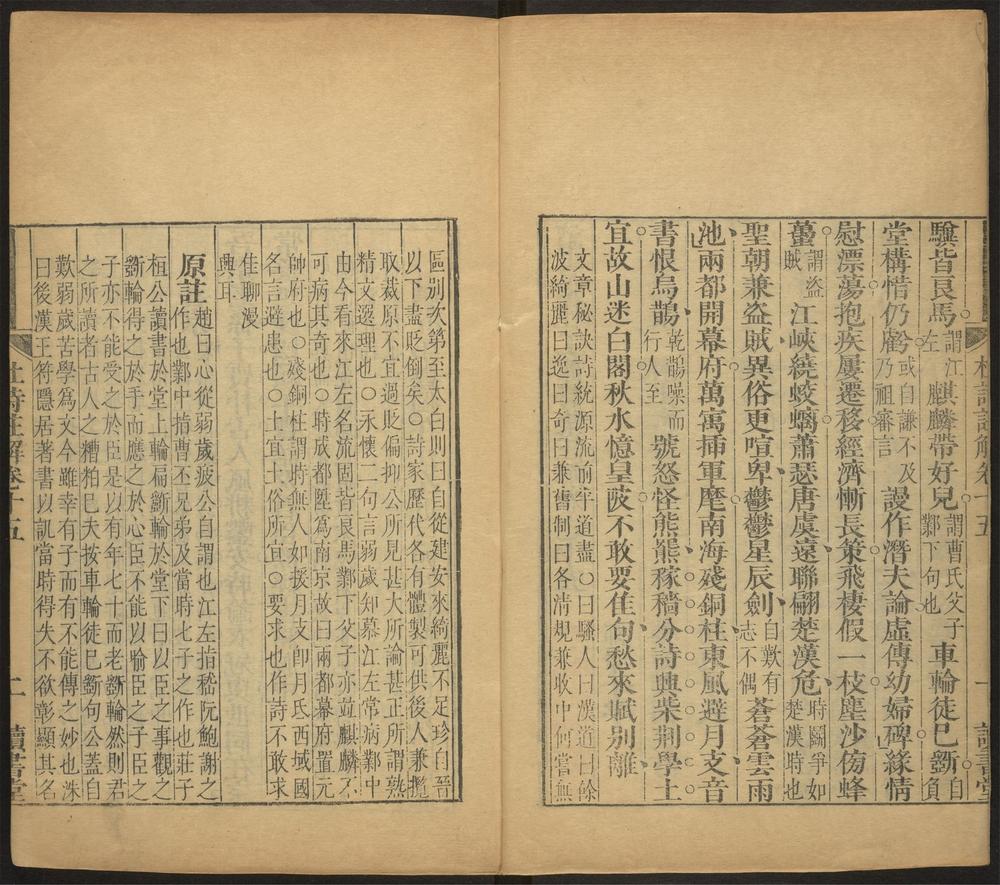 騄皆良馬謂江左麒麟帶好兒謂曹氏父子鄴下句也車輪徒巳斵自負
堂構惜仍虧兮或自謙不及乃祖審言謾作潛夫論虛傳幼婦碑緣情
慰漂蕩抱疾屢遷移經濟慚長策飛棲假一枝塵沙傍蜂
蠆謂盜賊江峽繞蛟螭蕭瑟唐虞遠聯翩楚漢危時鬬爭如楚漢時也
聖朝兼盜賊異俗更喧卑鬱鬱星辰劍自歎有志不偶蒼蒼雲雨
池兩都開幕府萬寓揷軍麾南海殘銅柱東風避月支音
書恨烏鵲乾鵲噪而行人至號怒怪熊羆稼穡分詩興柴荆學土
宜故山迷白閣秋水憶皇陂不敢要佳句愁來賦别離
文章秘訣詩統源流前半道盡○曰騷人曰漢道曰餘
波綺麗曰逸曰奇曰兼舊制曰各清規兼收中何嘗無
杜詩註解卷十五
一
讀書堂
區别次第至太白則曰自從建安來綺麗不足珍自晉
以下盡貶倒矣○詩家歷代各有體製可供後人兼攬
取裁原不宜過貶偏抑公所見甚大所論甚正所謂熟
精文選理也○永懷二句言弱歲知慕江左常病鄴中
由今看來江左名流固皆良馬鄴下父子亦並麒麟不
可病其奇也○時成都陞爲南京故曰兩都幕府置元
帥府也○殘銅柱謂時無人如援月支卽月氏西域國
名言避患也○土宜土俗所宜○要求也作詩不敢求
佳聊漫
興耳
原註趙曰心從弱歲疲公自謂也江左指嵇阮鮑謝之
作也鄴中指曹丕兄弟及當時七子之作也莊子
桓公讀書於堂上輪扁斵輪於堂下曰以臣之事觀之
斵輪得之於手而應之於心臣不能以喻臣之子臣之
子亦不能受之於臣是以有年七十而老斵輪然則君
之所讀者古人之糟粕巳夫按車輪徒巳斵句公蓋自
歎弱歲苦學爲文今雖幸有子而有不能傳之妙也洙
曰後漢王符隱居著書以訊當時得失不欲彰顯其名
杜詩註解卷十五
二
讀書堂